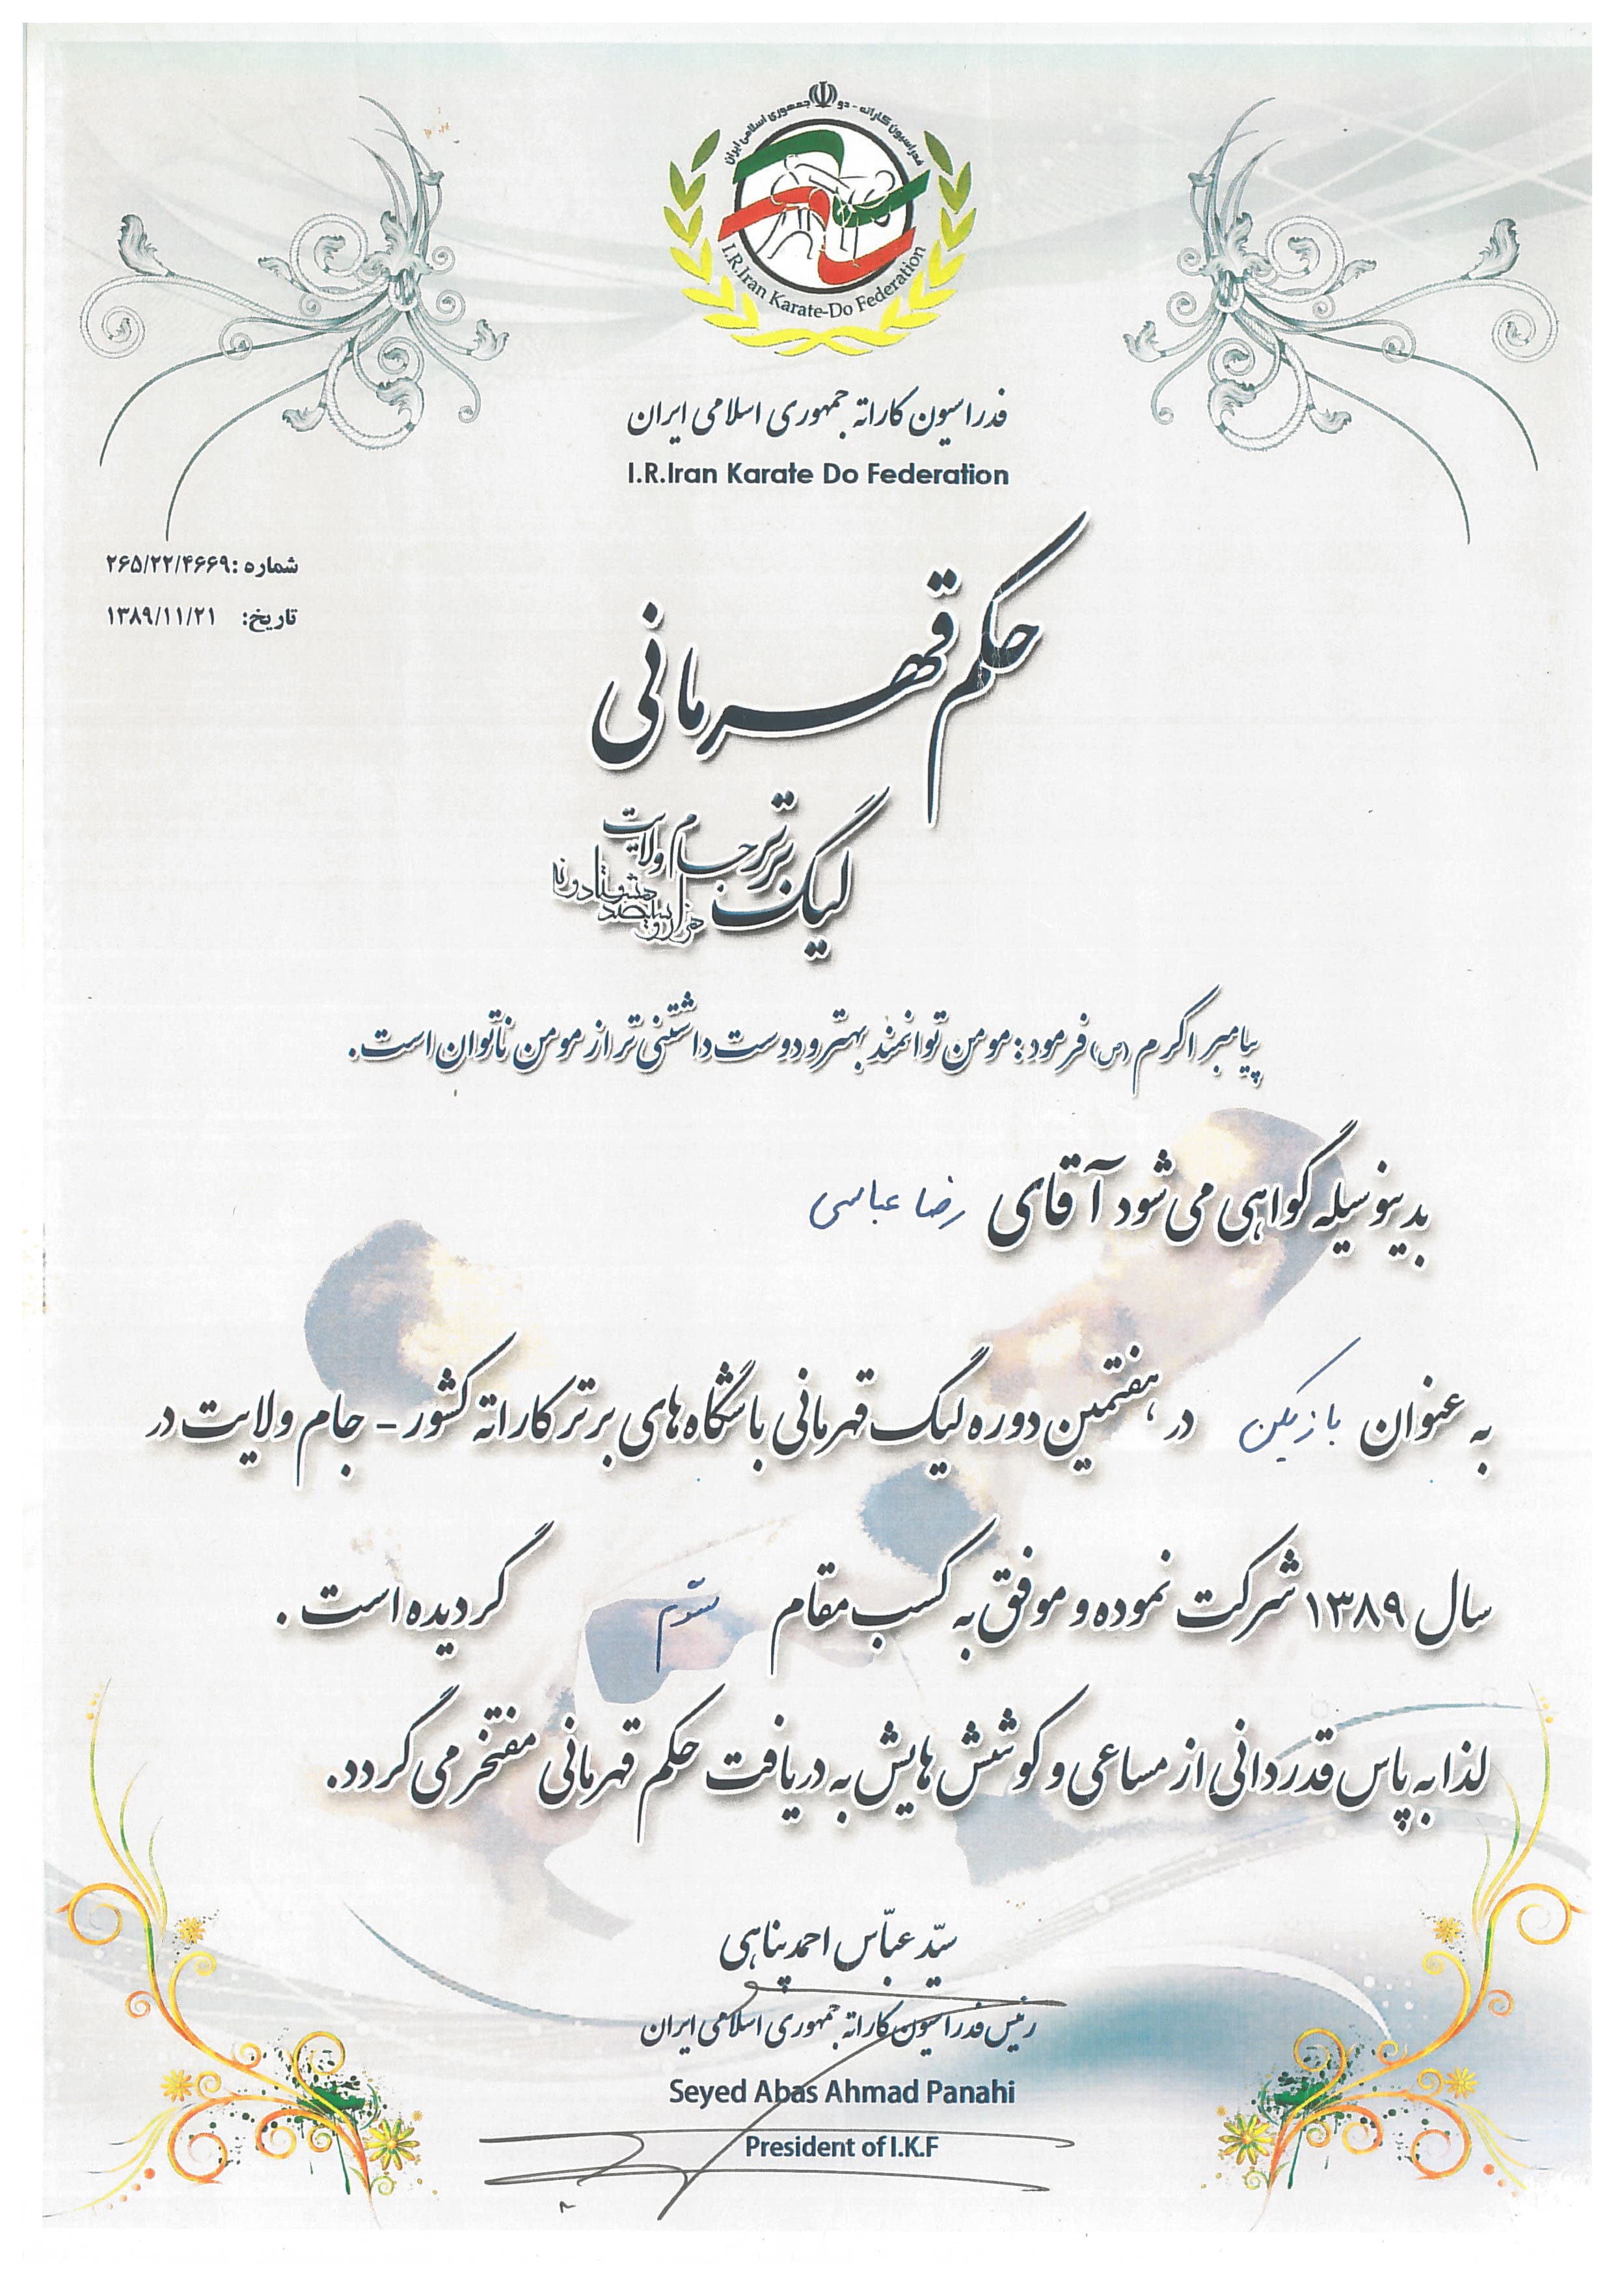 فدراسیون کاراته - دو جمهوری اسلامی ایران
I.R.Iran Karate-Do Federation
فدراسیون کاراته جمهوری اسلامی ایران
I.R.Iran Karate Do Federation
شماره :۲۶۵/۲۲/۴۶۶۹
تاریخ: ۱۳۸۹/۱۱/۲۱
حکم قهرمانی
لیگ برتر جام ولایت
هزار و سیصد و هشتاد و نه
پیامبر اکرم (ص) فرمود: مومن توانمند بهتر و دوست داشتنی تر از مومن ناتوان است.
بدینوسیله گواهی می شود آقای رضا عباسی
به عنوان بازیکن در هفتمین دوره لیگ قهرمانی باشگاه های برتر کاراته کشور - جام ولایت در
سال ۱۳۸۹ شرکت نموده و موفق به کسب مقام سوم گردیده است .
لذا به پاس قدردانی از مساعی و کوشش هایش به دریافت حکم قهرمانی مفتخر می گردد.
سیّد عبّاس احمد پناهی
رئیس فدراسیون کاراته جمهوری اسلامی ایران
Seyed Abas Ahmad Panahi
President of I.K.F